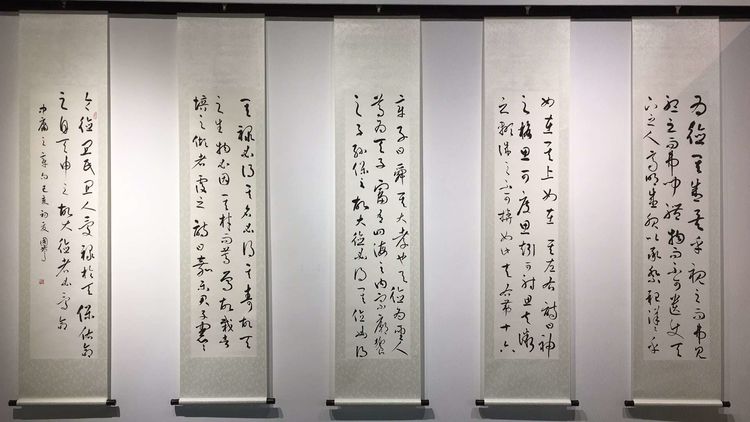 為德其盛矣乎視之而弗見
聽之而弗聞體物而不可遺使天
下之人齊明盛服以承祭祀洋洋乎
如在其上如在其左右詩曰神
之格思不可度思矧可射思夫微
之顯誠之不可揜如此夫右第十六
章子曰舜其大孝也與德為聖人
尊為天子富有四海之內宗廟饗
之子孫保之故大德必得其位必得
其祿必得其名必得其壽故天
之生物必因其材而篤焉故栽者
培之傾者覆之詩曰嘉樂君子憲憲
令德宜民宜人受祿於天保佑命
之自天申之故大德者必受命
中庸之章句己亥初夏